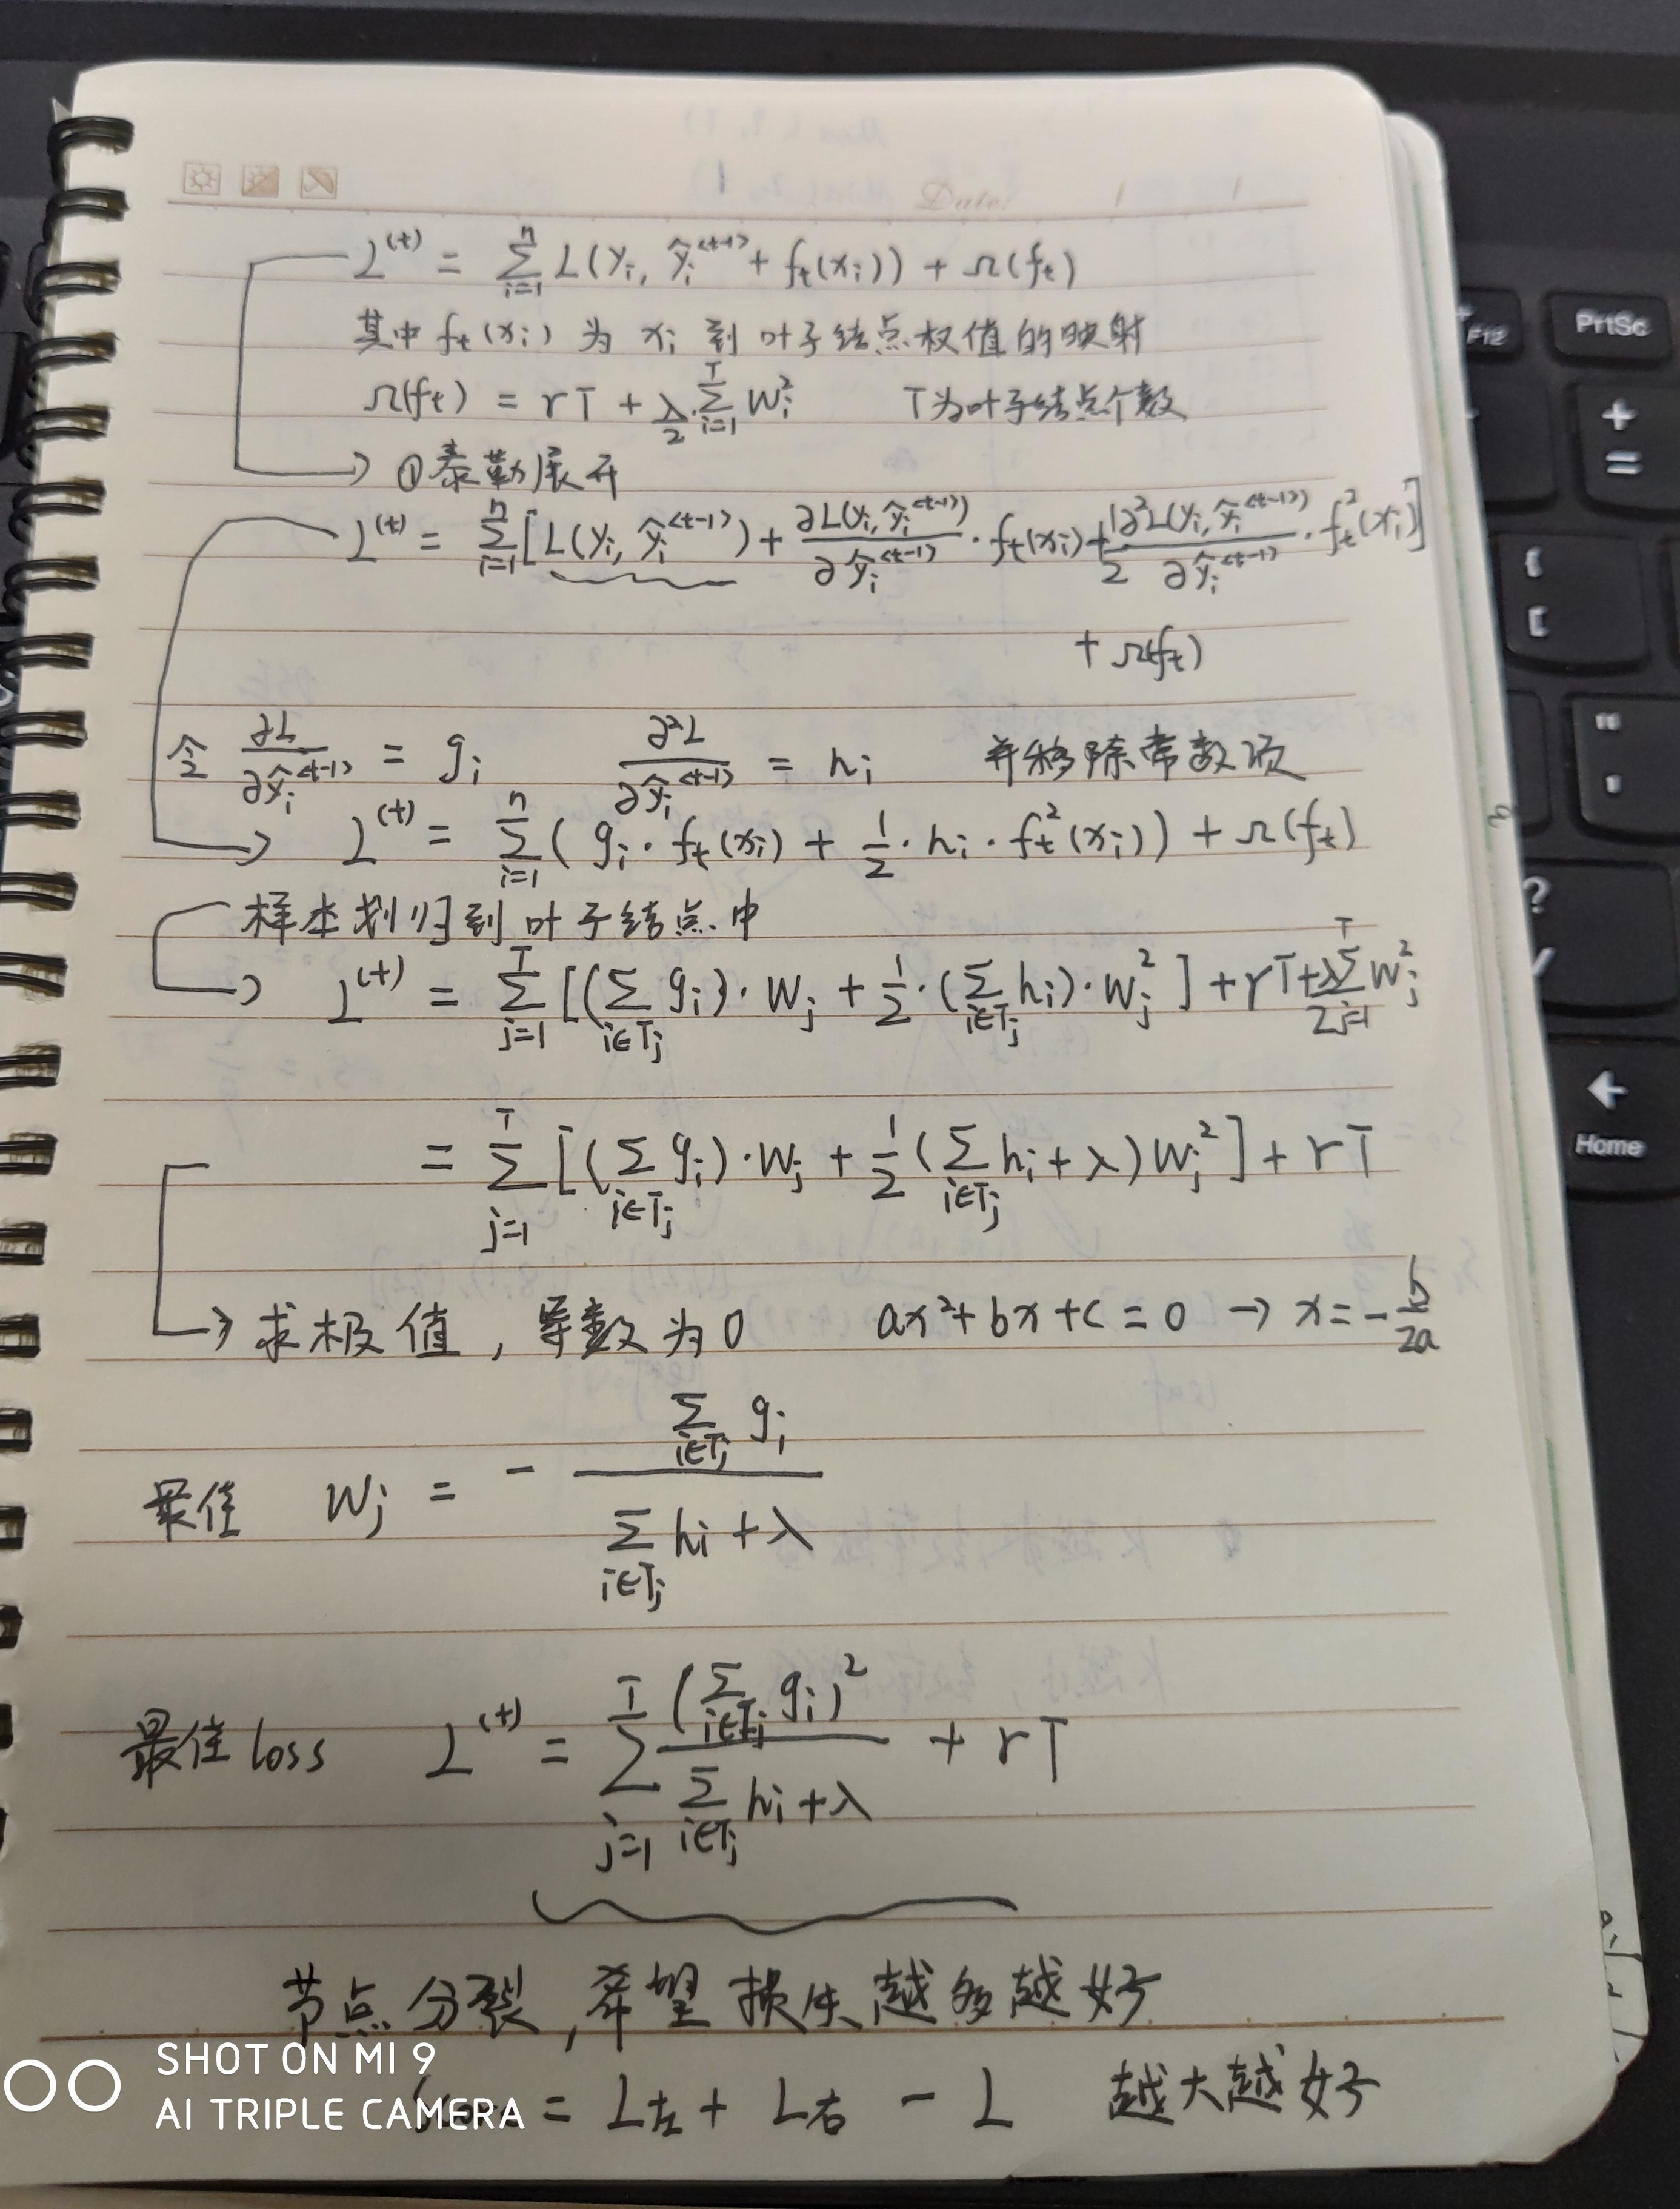 Date:
L^(t) = Σ_{i=1}^{n} L(y_i, ŷ_i^{<t-1>} + f_t(x_i)) + Ω(f_t)
其中 f_t(x_i) 为 x_i 到 叶子结点权值的映射
Ω(f_t) = rT + λ/2 · Σ_{i=1}^{T} W_i^2 T为叶子结点个数
→ ①泰勒展开
L^(t) = Σ_{i=1}^{n} [L(y_i, ŷ_i^{<t-1>}) + ∂L(y_i, ŷ_i^{<t-1>})/∂ŷ_i^{<t-1>} · f_t(x_i) + 1/2 ∂²L(y_i, ŷ_i^{<t-1>})/∂ŷ_i^{<t-1>} · f_t^2(x_i)]
+ Ω(f_t)
令 ∂L/∂ŷ_i^{<t-1>} = g_i ∂²L/∂ŷ_i^{<t-1>} = h_i 并移除常数项
→ L^(t) = Σ_{i=1}^{n} (g_i · f_t(x_i) + 1/2 · h_i · f_t^2(x_i)) + Ω(f_t)
样本划归到叶子结点中
→ L^(t) = Σ_{j=1}^{T} [(Σ_{i∈T_j} g_i) · W_j + 1/2 · (Σ_{i∈T_j} h_i) · W_j^2] + rT + λ/2 Σ_{j=1}^{T} W_j^2
= Σ_{j=1}^{T} [(Σ_{i∈T_j} g_i) · W_j + 1/2 (Σ_{i∈T_j} h_i + λ) W_j^2] + rT
→ 求极值, 导数为0 ax² + bx + c = 0 → x = - b/2a
最佳 W_j = - Σ_{i∈T_j} g_i / Σ_{i∈T_j} h_i + λ
最佳loss L^(t) = Σ_{j=1}^{T} (Σ_{i∈T_j} g_i)^2 / Σ_{i∈T_j} h_i + λ + rT
节点分裂,希望损失越多越好
= L左 + L右 - L 越大越好
SHOT ON MI 9
AI TRIPLE CAMERA
PrtSc
F12
+
=
{
[
"
'
?
Home